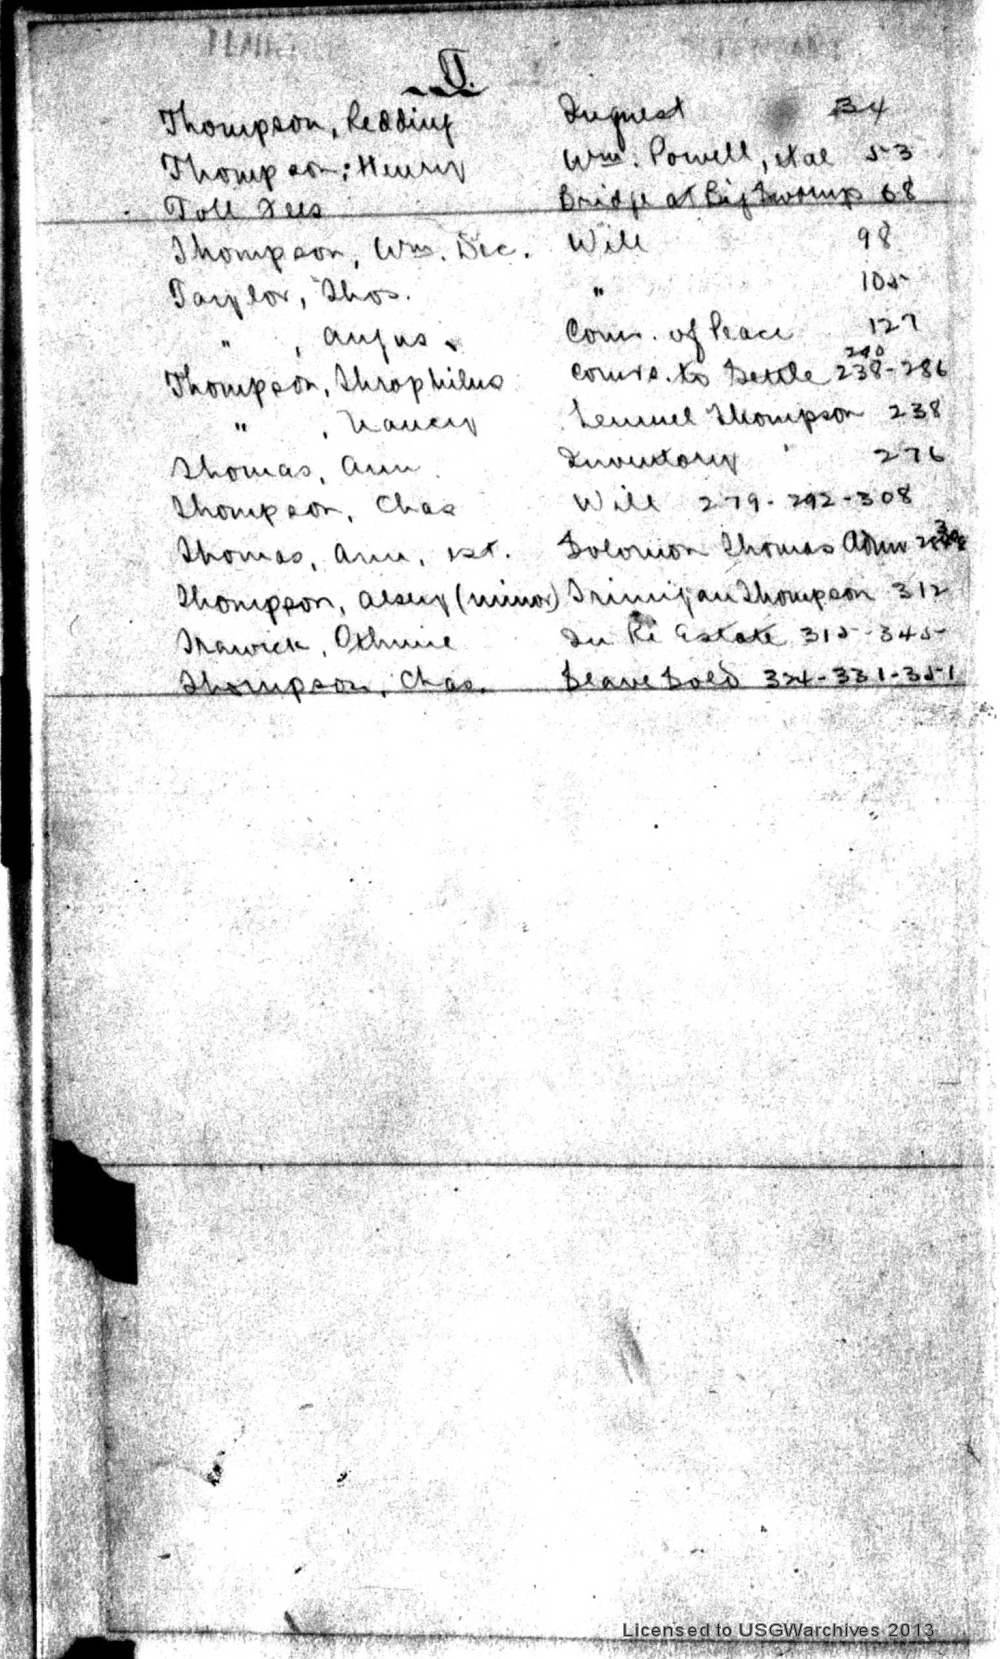 T.
Thompson, Redding Inquest 34
Thompson; Henry Wm. Powell, et al 53
Toll Fees Bridge at Big Swamp 68
Thompson, Wm. Dec. Will 98
Taylor, Thos. " 105
" , Angus Com. of Peace 127
240
Thompson, Throphilus Comrs. to Settle 238-286
" , Nancy Lemuel Thompson 238
Thomas, Ann Inventory 276
Thompson, Chas Will 279-292-308
Thomas, Ann, est. Solomon Thomas Admr
Thompson, Alsey (minor) Trimijan Thompson 312
Trawick, In Re Estate 315-345
Thompson, Chas. Slave Sold 324-331-351
Licensed to USGWarchives 2013